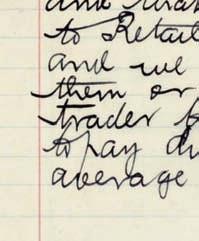 to Retail
and we
them or
trader
to pay
average